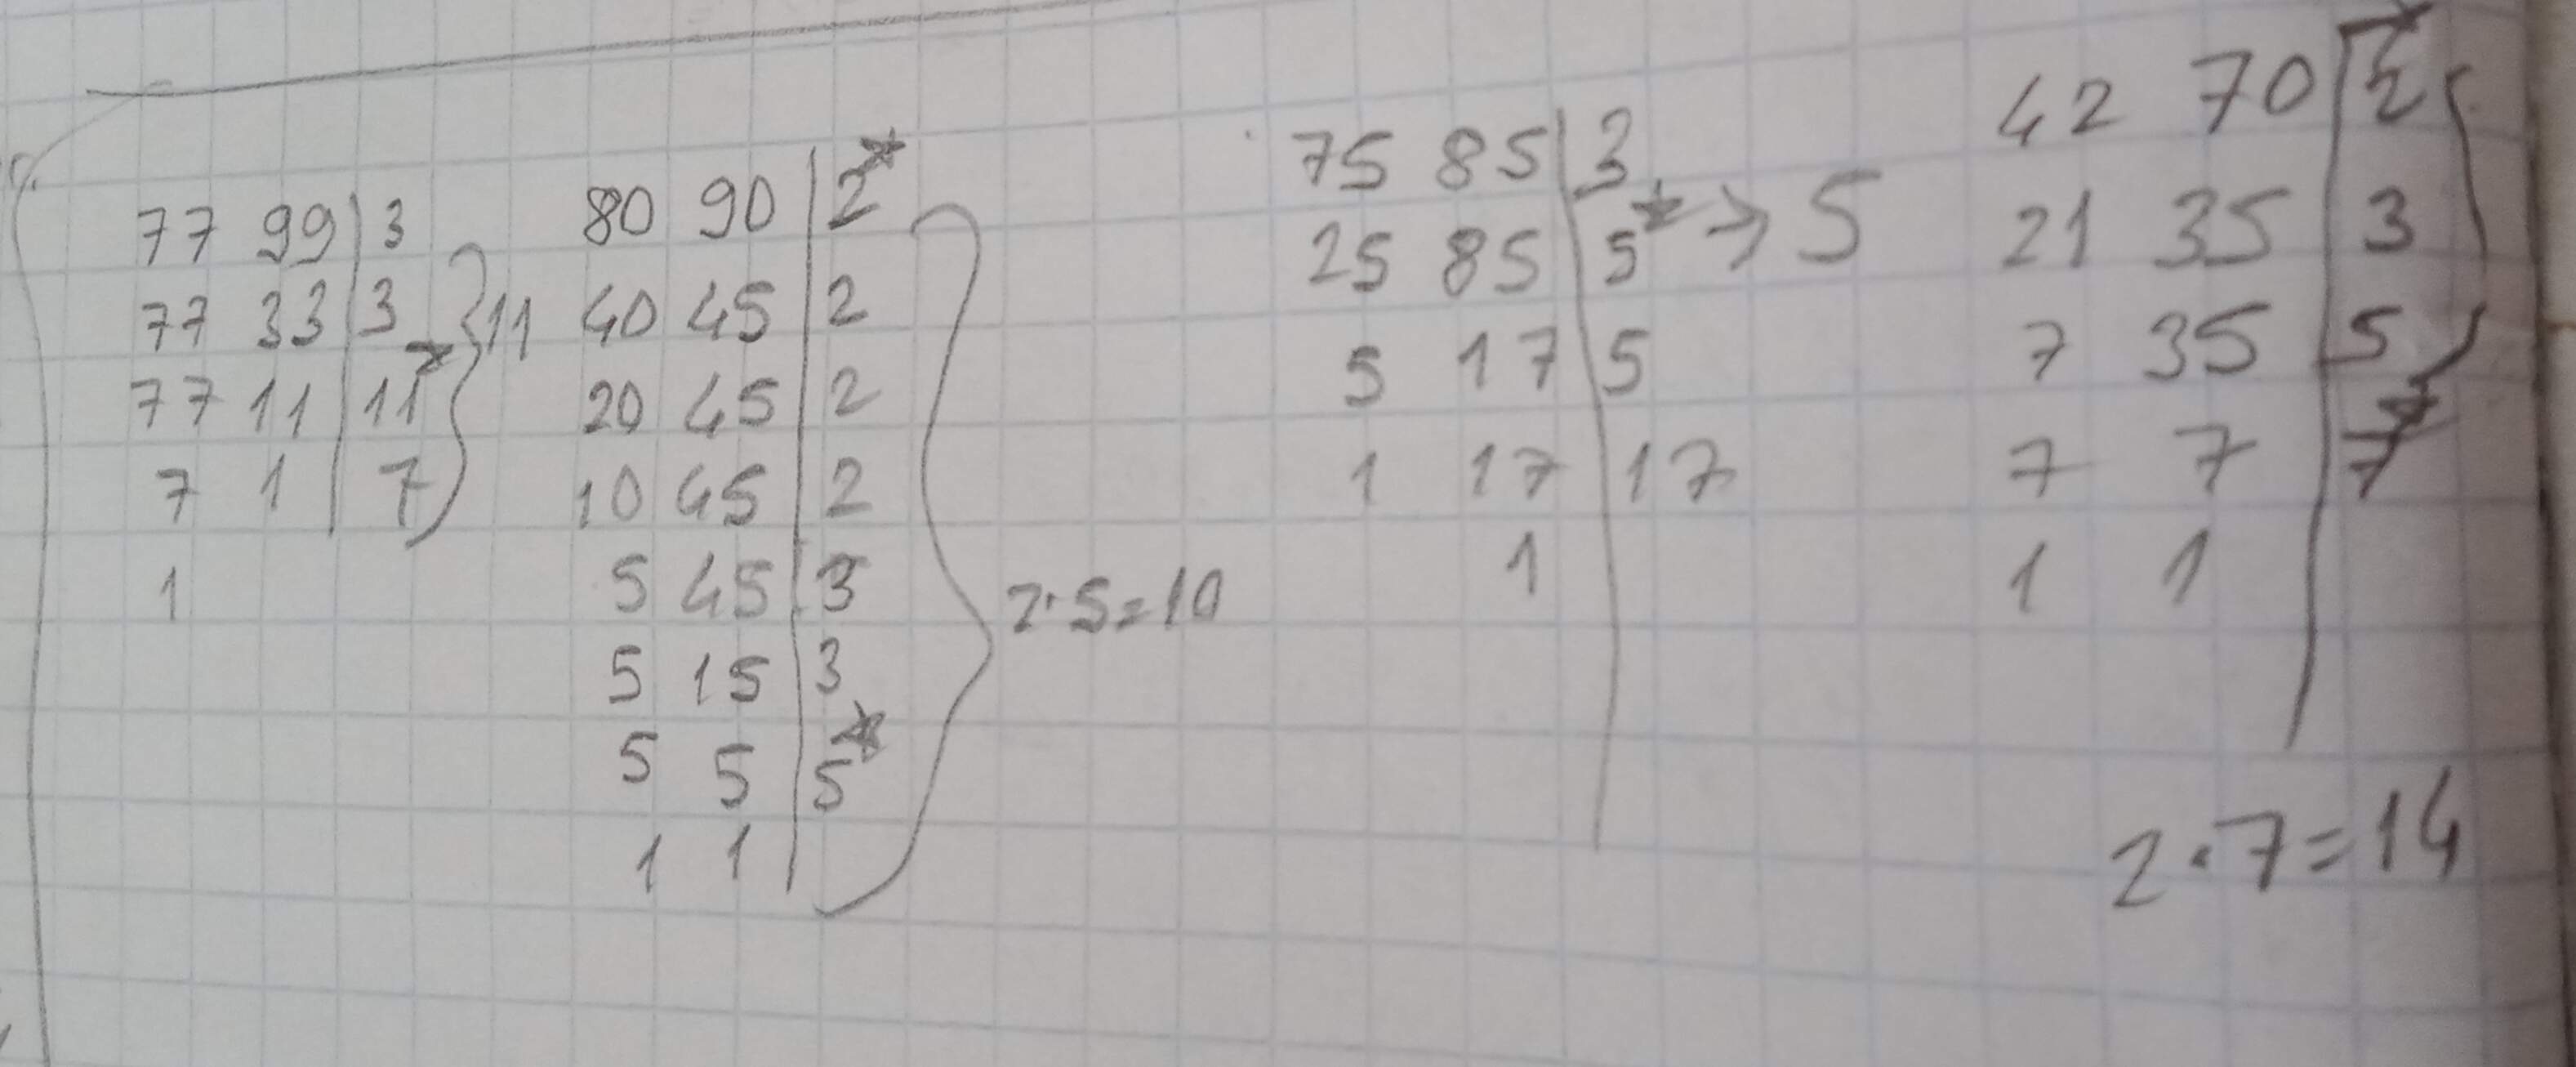 77 99 | 3
77 33 | 3
77 11 | 11*
7 1 | 7
1
11
80 90 | 2*
40 45 | 2
20 45 | 2
10 45 | 2
5 45 | 3
5 15 | 3
5 5 | 5*
1 1
2·5=10
75 85 | 3
25 85 | 5* → 5
5 17 | 5
1 17 | 17
1
42 70 | 2*
21 35 | 3
7 35 | 5
7 7 | 7*
1 1
2·7=14